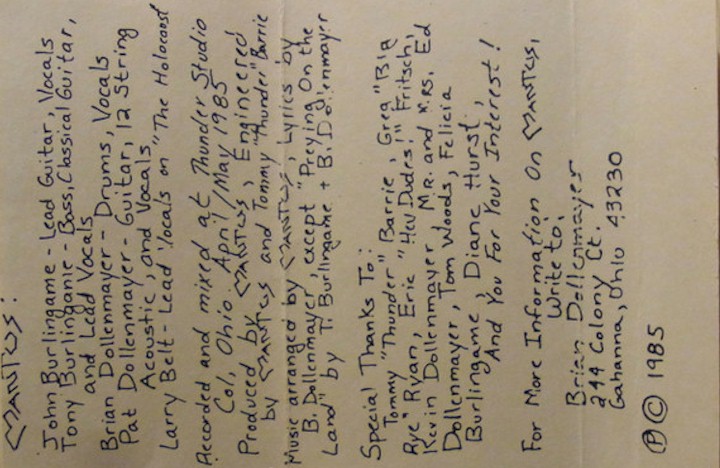 MANTUS:
John Burlingame - Lead Guitar, Vocals
Tony Burlingame - Bass, Classical Guitar,
and Lead Vocals
Brian Dollenmayer - Drums, Vocals
Pat Dollenmayer - Guitar, 12 String
Acoustic, and Vocals
Larry Belt - Lead Vocals on "The Holocaust
Recorded and mixed at Thunder Studio
Col, Ohio April/May 1985
Produced by MANTUS, Engineered
by MANTUS and Tommy "Thunder" Barrie
Music arranged by MANTUS, Lyrics by
B. Dollenmayer, except "Preying On the
Land" by T. Burlingame + B. Dollenmayer
Special Thanks To:
Tommy "Thunder" Barrie, Greg "Big
Rye" Ryan, Eric "Hey Dudes!" Fritsch,
Kevin Dollenmayer, MR. and MRS. Ed
Dollenmayer, Tom Woods, Felicia
Burlingame, Diane Hurst,
And You For Your Interest!
For More Information On MANTUS,
Write to:
Brian Dollenmayer
244 Colony Ct.
Gahanna, Ohio 43230
Ⓟ © 1985